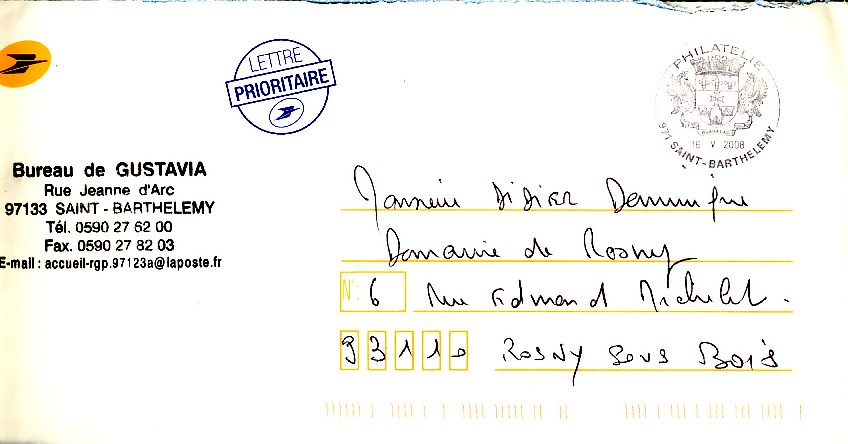 LETTRE
PRIORITAIRE
PHILATELIE
16 V 2008
971 SAINT-BARTHELEMY
Bureau de GUSTAVIA
Rue Jeanne d'Arc
97133 SAINT - BARTHELEMY
Tél. 0590 27 62 00
Fax. 0590 27 82 03
E-mail : accueil-rgp.97123a@laposte.fr
Monsieur Didier
Domaine de Rosny
N°: 6 Rue Edmond Michelet.
93110 ROSNY SOUS BOIS